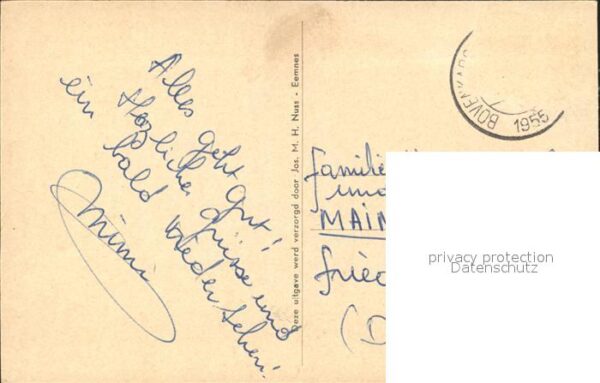 Alles geht gut!
Herzliche Grüsse und
ein bald wiedersehen!
Mimi
Deze uitgave werd verzorgd door Jos. M. H. Nuss - Eemnes
BOVENKARS
1955
Familie
und
MAIN
Fried
(D
privacy protection
Datenschutz